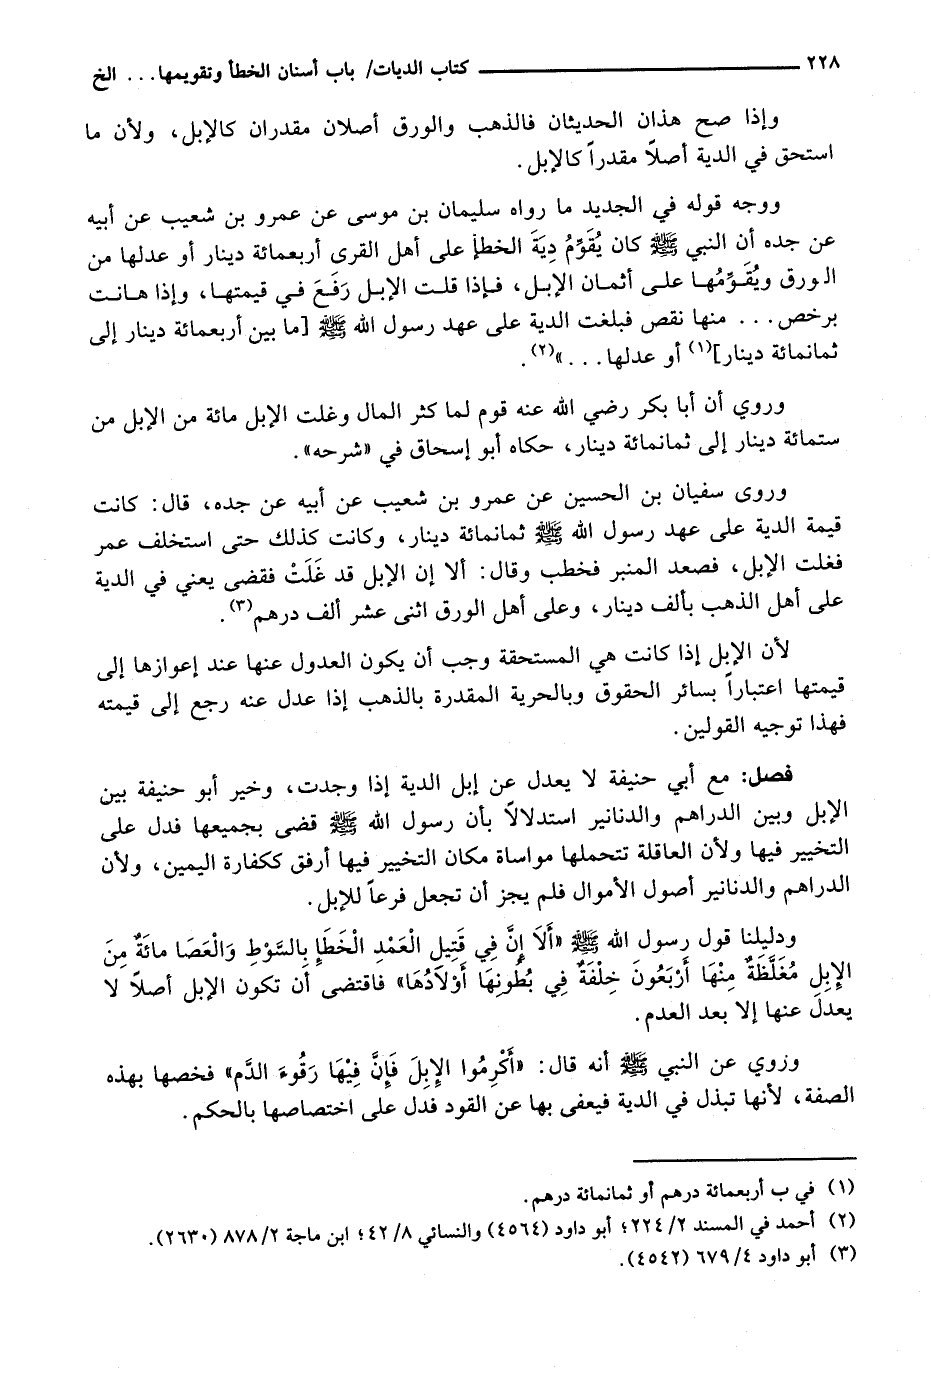 ٢٢٨ كتاب الديات/ باب أسنان الخطأ وتقويمها... الخ
وإذا صح هذان الحديثان فالذهب والورق أصلان مقدران كالإبل، ولأن ما
استحق في الدية أصلاً مقدراً كالإبل.
ووجه قوله في الجديد ما رواه سليمان بن موسى عن عمرو بن شعيب عن أبيه
عن جده أن النبي ﷺ كان يُقَوِّمُ دِيَةَ الخطأ على أهل القرى أربعمائة دينار أو عدلها من
الورق ويُقَوِّمُها على أثمان الإبل، فإذا قلت الإبل رَفَعَ في قيمتها، وإذا هانت
برخص... منها نقص فبلغت الدية على عهد رسول الله ﷺ [ما بين أربعمائة دينار إلى
ثمانمائة دينار](١) أو عدلها...»(٢).
وروي أن أبا بكر رضي الله عنه قوم لما كثر المال وغلت الإبل مائة من الإبل من
ستمائة دينار إلى ثمانمائة دينار، حكاه أبو إسحاق في «شرحه».
وروى سفيان بن الحسين عن عمرو بن شعيب عن أبيه عن جده، قال: كانت
قيمة الدية على عهد رسول الله ﷺ ثمانمائة دينار، وكانت كذلك حتى استخلف عمر
فغلت الإبل، فصعد المنبر فخطب وقال: ألا إن الإبل قد غَلَتْ فقضى يعني في الدية
على أهل الذهب بألف دينار، وعلى أهل الورق اثنى عشر ألف درهم(٣).
لأن الإبل إذا كانت هي المستحقة وجب أن يكون العدول عنها عند إعوازها إلى
قيمتها اعتباراً بسائر الحقوق وبالحرية المقدرة بالذهب إذا عدل عنه رجع إلى قيمته
فهذا توجيه القولين.
فصل: مع أبي حنيفة لا يعدل عن إبل الدية إذا وجدت، وخير أبو حنيفة بين
الإبل وبين الدراهم والدنانير استدلالاً بأن رسول الله ﷺ قضى بجميعها فدل على
التخيير فيها ولأن العاقلة تتحملها مواساة مكان التخيير فيها أرفق ككفارة اليمين، ولأن
الدراهم والدنانير أصول الأموال فلم يجز أن تجعل فرعاً للإبل.
ودليلنا قول رسول الله ﷺ «أَلَا إِنَّ فِي قَتِيلِ الْعَمْدِ الْخَطَإِ بِالسَّوْطِ وَالْعَصَا مائَةٌ مِنَ
الإِبِلِ مُغَلَّظَةٌ مِنْهَا أَرْبَعُونَ خِلْفَةٌ فِي بُطُونِهَا أَوْلَادُهَا» فاقتضى أن تكون الإبل أصلاً لا
يعدل عنها إلا بعد العدم.
وزوي عن النبي ﷺ أنه قال: «أَكْرِمُوا الإِبِلَ فَإِنَّ فِيْهَا رَقُوءَ الدَّم» فخصها بهذه
الصفة، لأنها تبذل في الدية فيعفى بها عن القود فدل على اختصاصها بالحكم.
(١) في ب أربعمائة درهم أو ثمانمائة درهم.
(٢) أحمد في المسند ٢/ ٢٢٤؛ أبو داود (٤٥٦٤) والنسائي ٨/ ٤٢؛ ابن ماجة ٢/ ٨٧٨ (٢٦٣٠).
(٣) أبو داود ٤/ ٦٧٩ (٤٥٤٢).